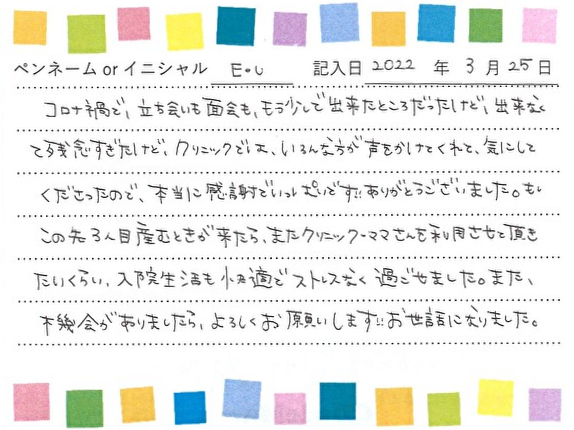 ペンネーム or イニシャル E・U 記入日 2022 年 3 月 25 日
コロナ禍で、立ち会いも面会も、もう少しで出来たところだったけど、出来なく
て残念すぎたけど、クリニックでは、いろんな方が声をかけてくれて、気にして
くださったので、本当に感謝でいっぱいです!!ありがとうございました。もし
この先3人目産むときが来たら、またクリニック-ママさんを利用させて頂き
たいくらい、入院生活も快適でストレスなく過ごせました。また、
機会がありましたら、よろしくお願いします!!お世話になりました。